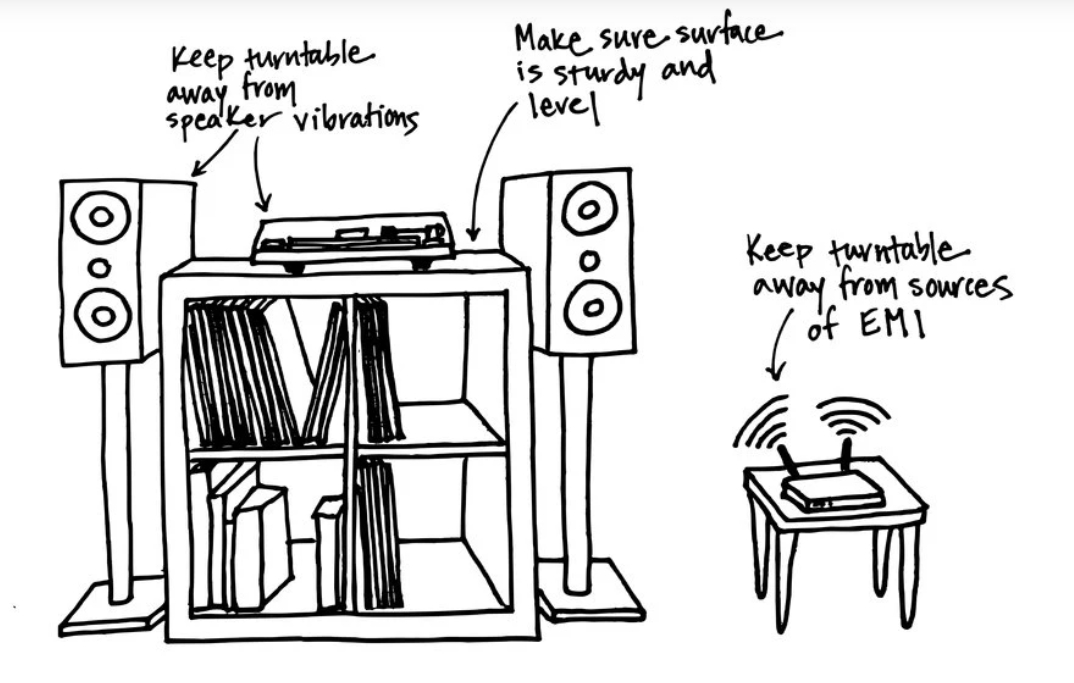 Keep turntable
away from
speaker vibrations
Make sure surface
is sturdy and
level
Keep turntable
away from sources
of EMI